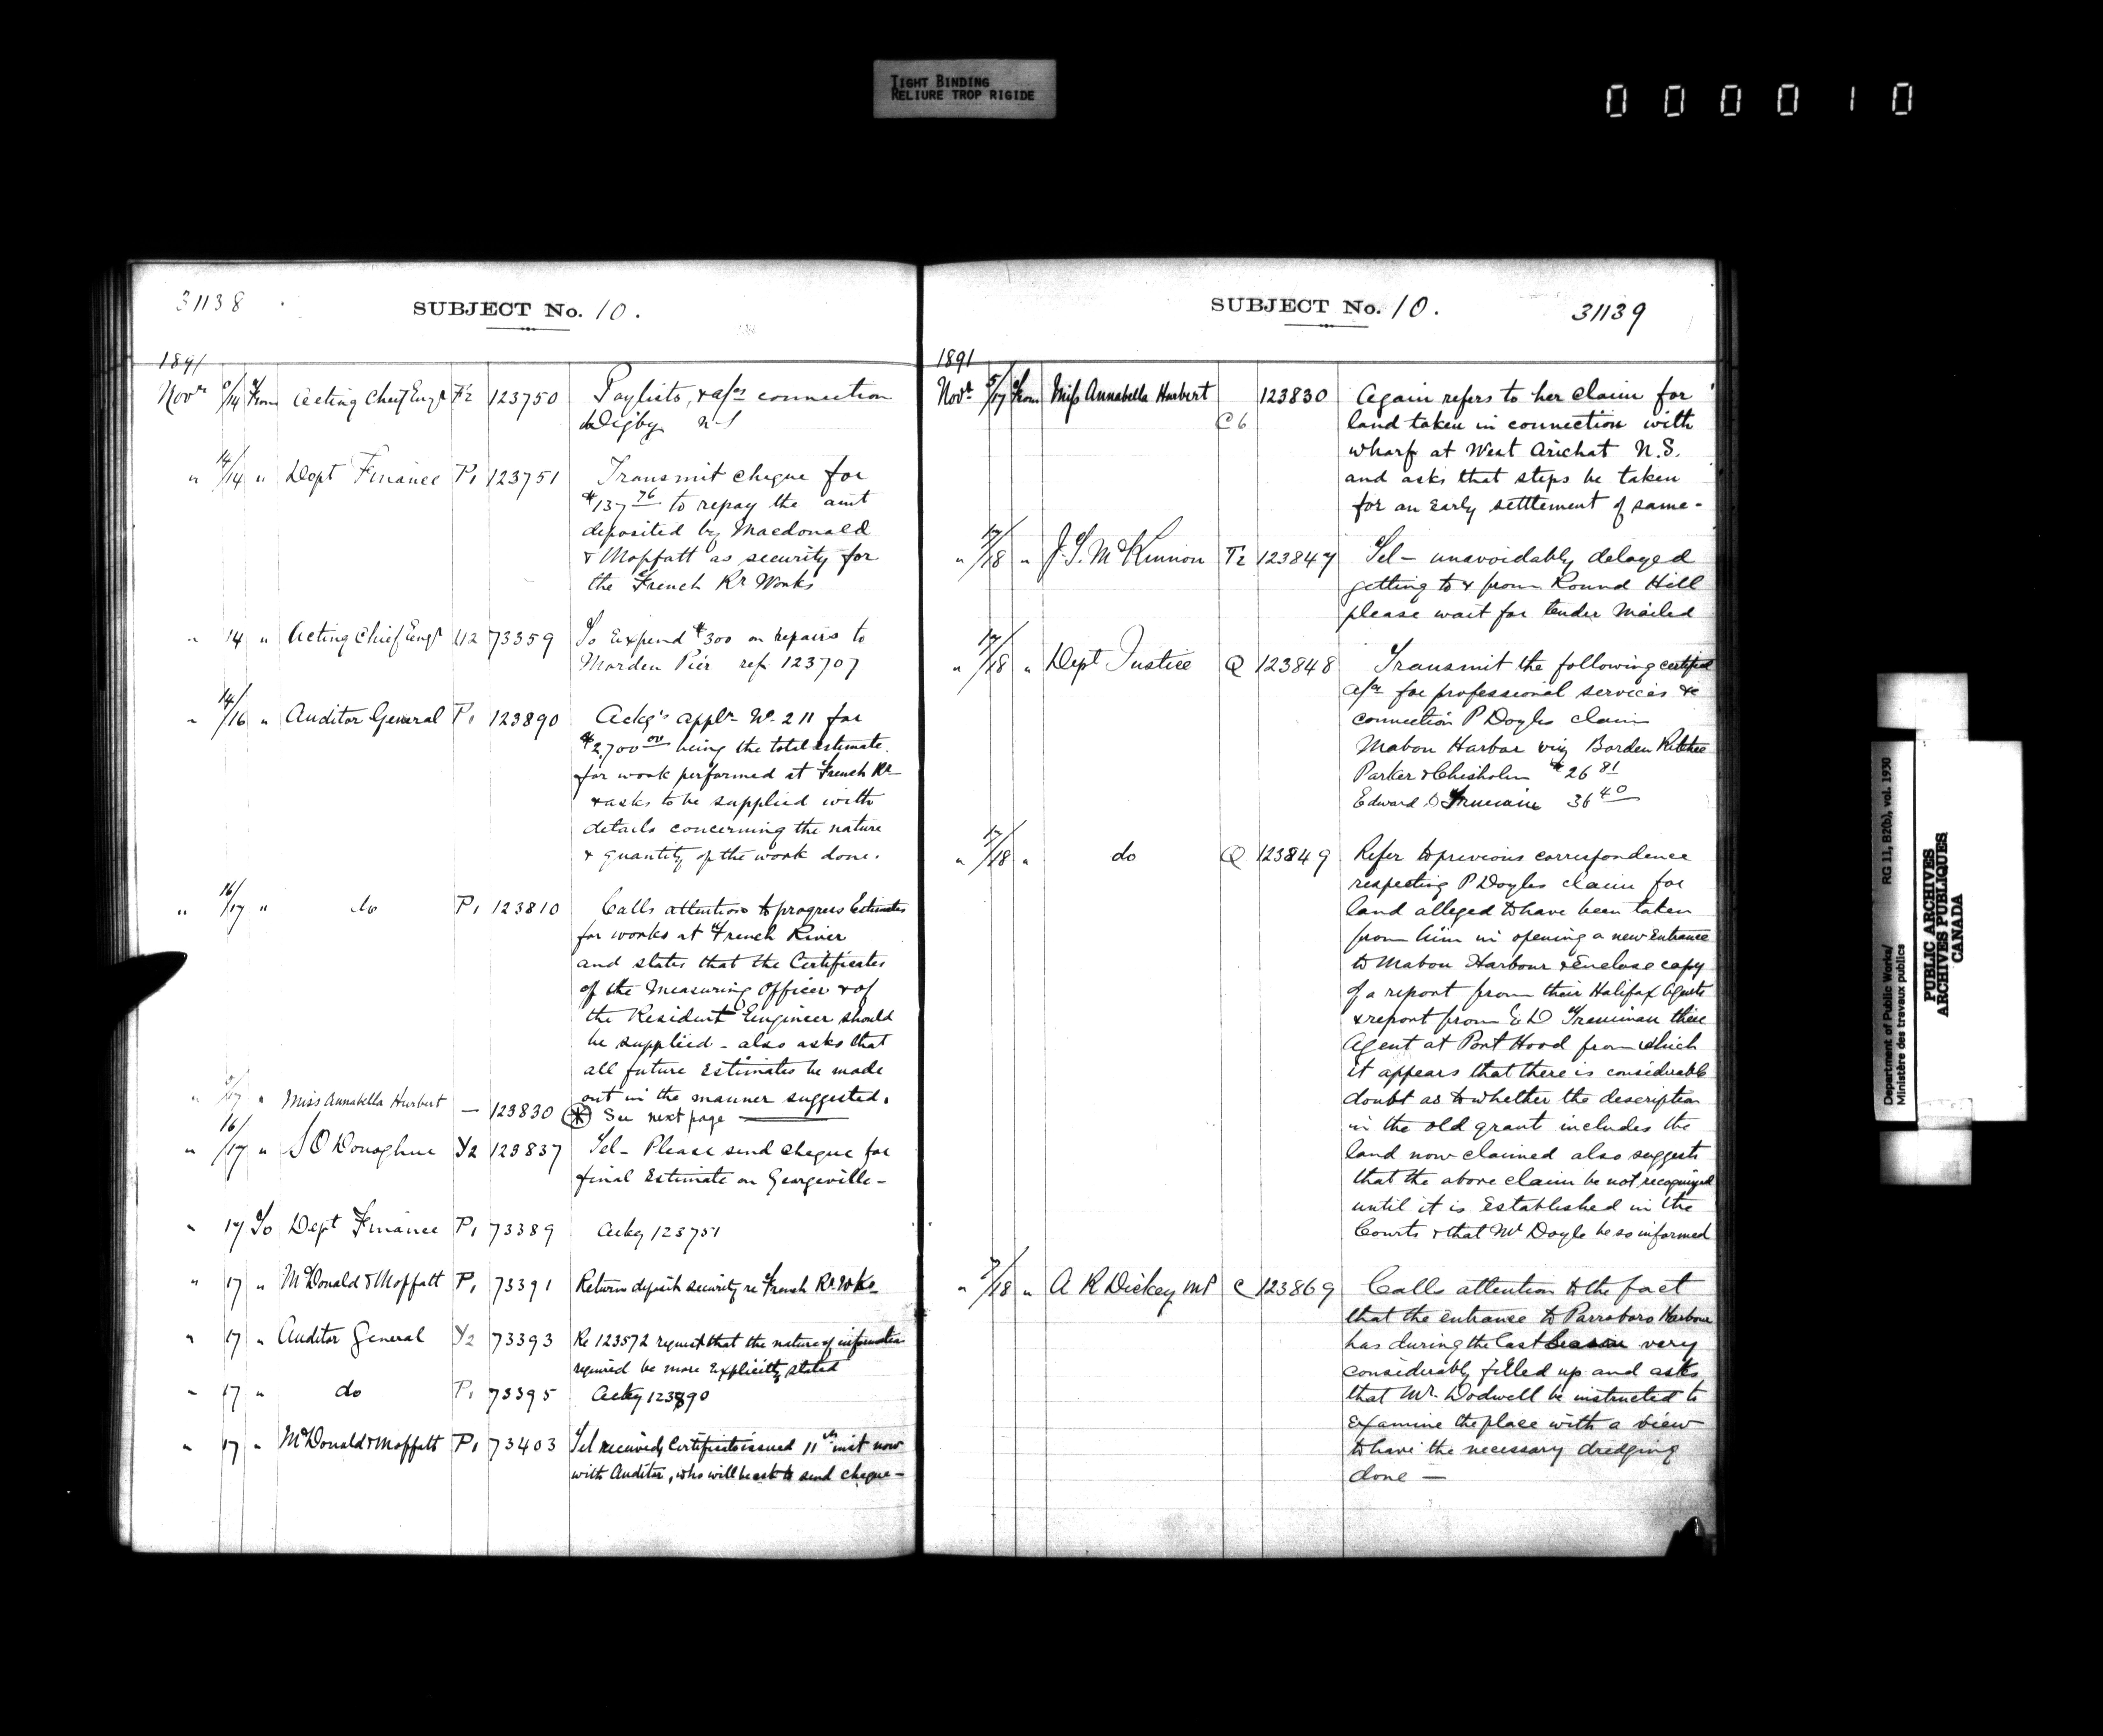 TIGHT BINDING
RELIURE TROP RIGIDE
000010
31138
SUBJECT No. 10.
1891
Novr 9/14 From Acting Chief Engr F2 123750 Paylists, & a/cs connection
Digby N S
" 14/14 " Dept Finance P1 123751 Transmit cheque for
$137 76 to repay the amt
deposited by Macdonald
& Moffatt as security for
the French Rr Works
" 14 " Acting Chief Engr U2 73359 To Expend $300 on repairs to
Morden Pier ref 123707
" 14/16 " Auditor General P1 123890 Ackgs appln No. 211 for
$2,700 00 being the total estimate
for work performed at French Rr
& asks to be supplied with
details concerning the nature
& quantity of the work done.
" 16/17 " do P1 123810 Calls attention to progress Estimates
for works at French River
and states that the Certificates
of the Measuring Officer & of
the Resident Engineer should
be supplied - also asks that
all future Estimates be made
out in the manner suggested.
" 5/17 " Miss Annabella Hurbert — 123830 * See next page
" 16/17 " S O'Donoghue Y2 123837 Tel - Please send cheque for
final Estimate on Georgeville -
" 17 To Dept Finance P1 73389 Ackg 123751
" 17 " McDonald & Moffatt P1 73391 Return deposit security re French Rr. Wks
" 17 " Auditor General Y2 73393 Re 123572 request that the nature of information
required be more Explicitly stated
" 17 " do P1 73395 Ackg 123890
" 17 " McDonald & Moffatt P1 73403 Tel received, Certificate issued 11th inst now
with Auditor, who will be ask to send cheque -
SUBJECT No. 10.
31139
1891
Novr 5/17 From Miss Annabella Hurbert C6 123830 Again refers to her claim for
land taken in connection with
wharf at West Arichat N.S.
and asks that steps be taken
for an Early settlement of same -
" 17/18 " J. S. McKinnon T2 123847 Tel - unavoidably delayed
getting to & from Round Hill
please wait for tender Mailed
" 17/18 " Dept Justice Q 123848 Transmit the following certified
a/cs for professional services &c
connection P Doyles claim
Mabou Harbor viz Borden Ritchie
Parker & Chisholm $26 81
Edward D Tremaine 36 40
" 17/18 " do Q 123849 Refer to previous correspondence
respecting P Doyles claim for
land alleged to have been taken
from him in opening a new Entrance
to Mabou Harbour & Enclose copy
of a report from their Halifax Agents
& report from E D Tremaine their
Agent at Port Hood from which
it appears that there is considerable
doubt as to whether the description
in the old grant includes the
land now claimed also suggests
that the above claim be not recognized
until it is Established in the
Courts & that Mr Doyle be so informed
" 7/18 " A R Dickey MP C 123869 Calls attention to the fact
that the entrance to Parrsboro Harbour
has during the last Season very
considerably filled up and asks
that Mr. Dodwell be instructed to
Examine the place with a view
to have the necessary dredging
done —
Department of Public Works/ RG 11, B2(b), vol. 1930
Ministère des travaux publics
PUBLIC ARCHIVES
ARCHIVES PUBLIQUES
CANADA